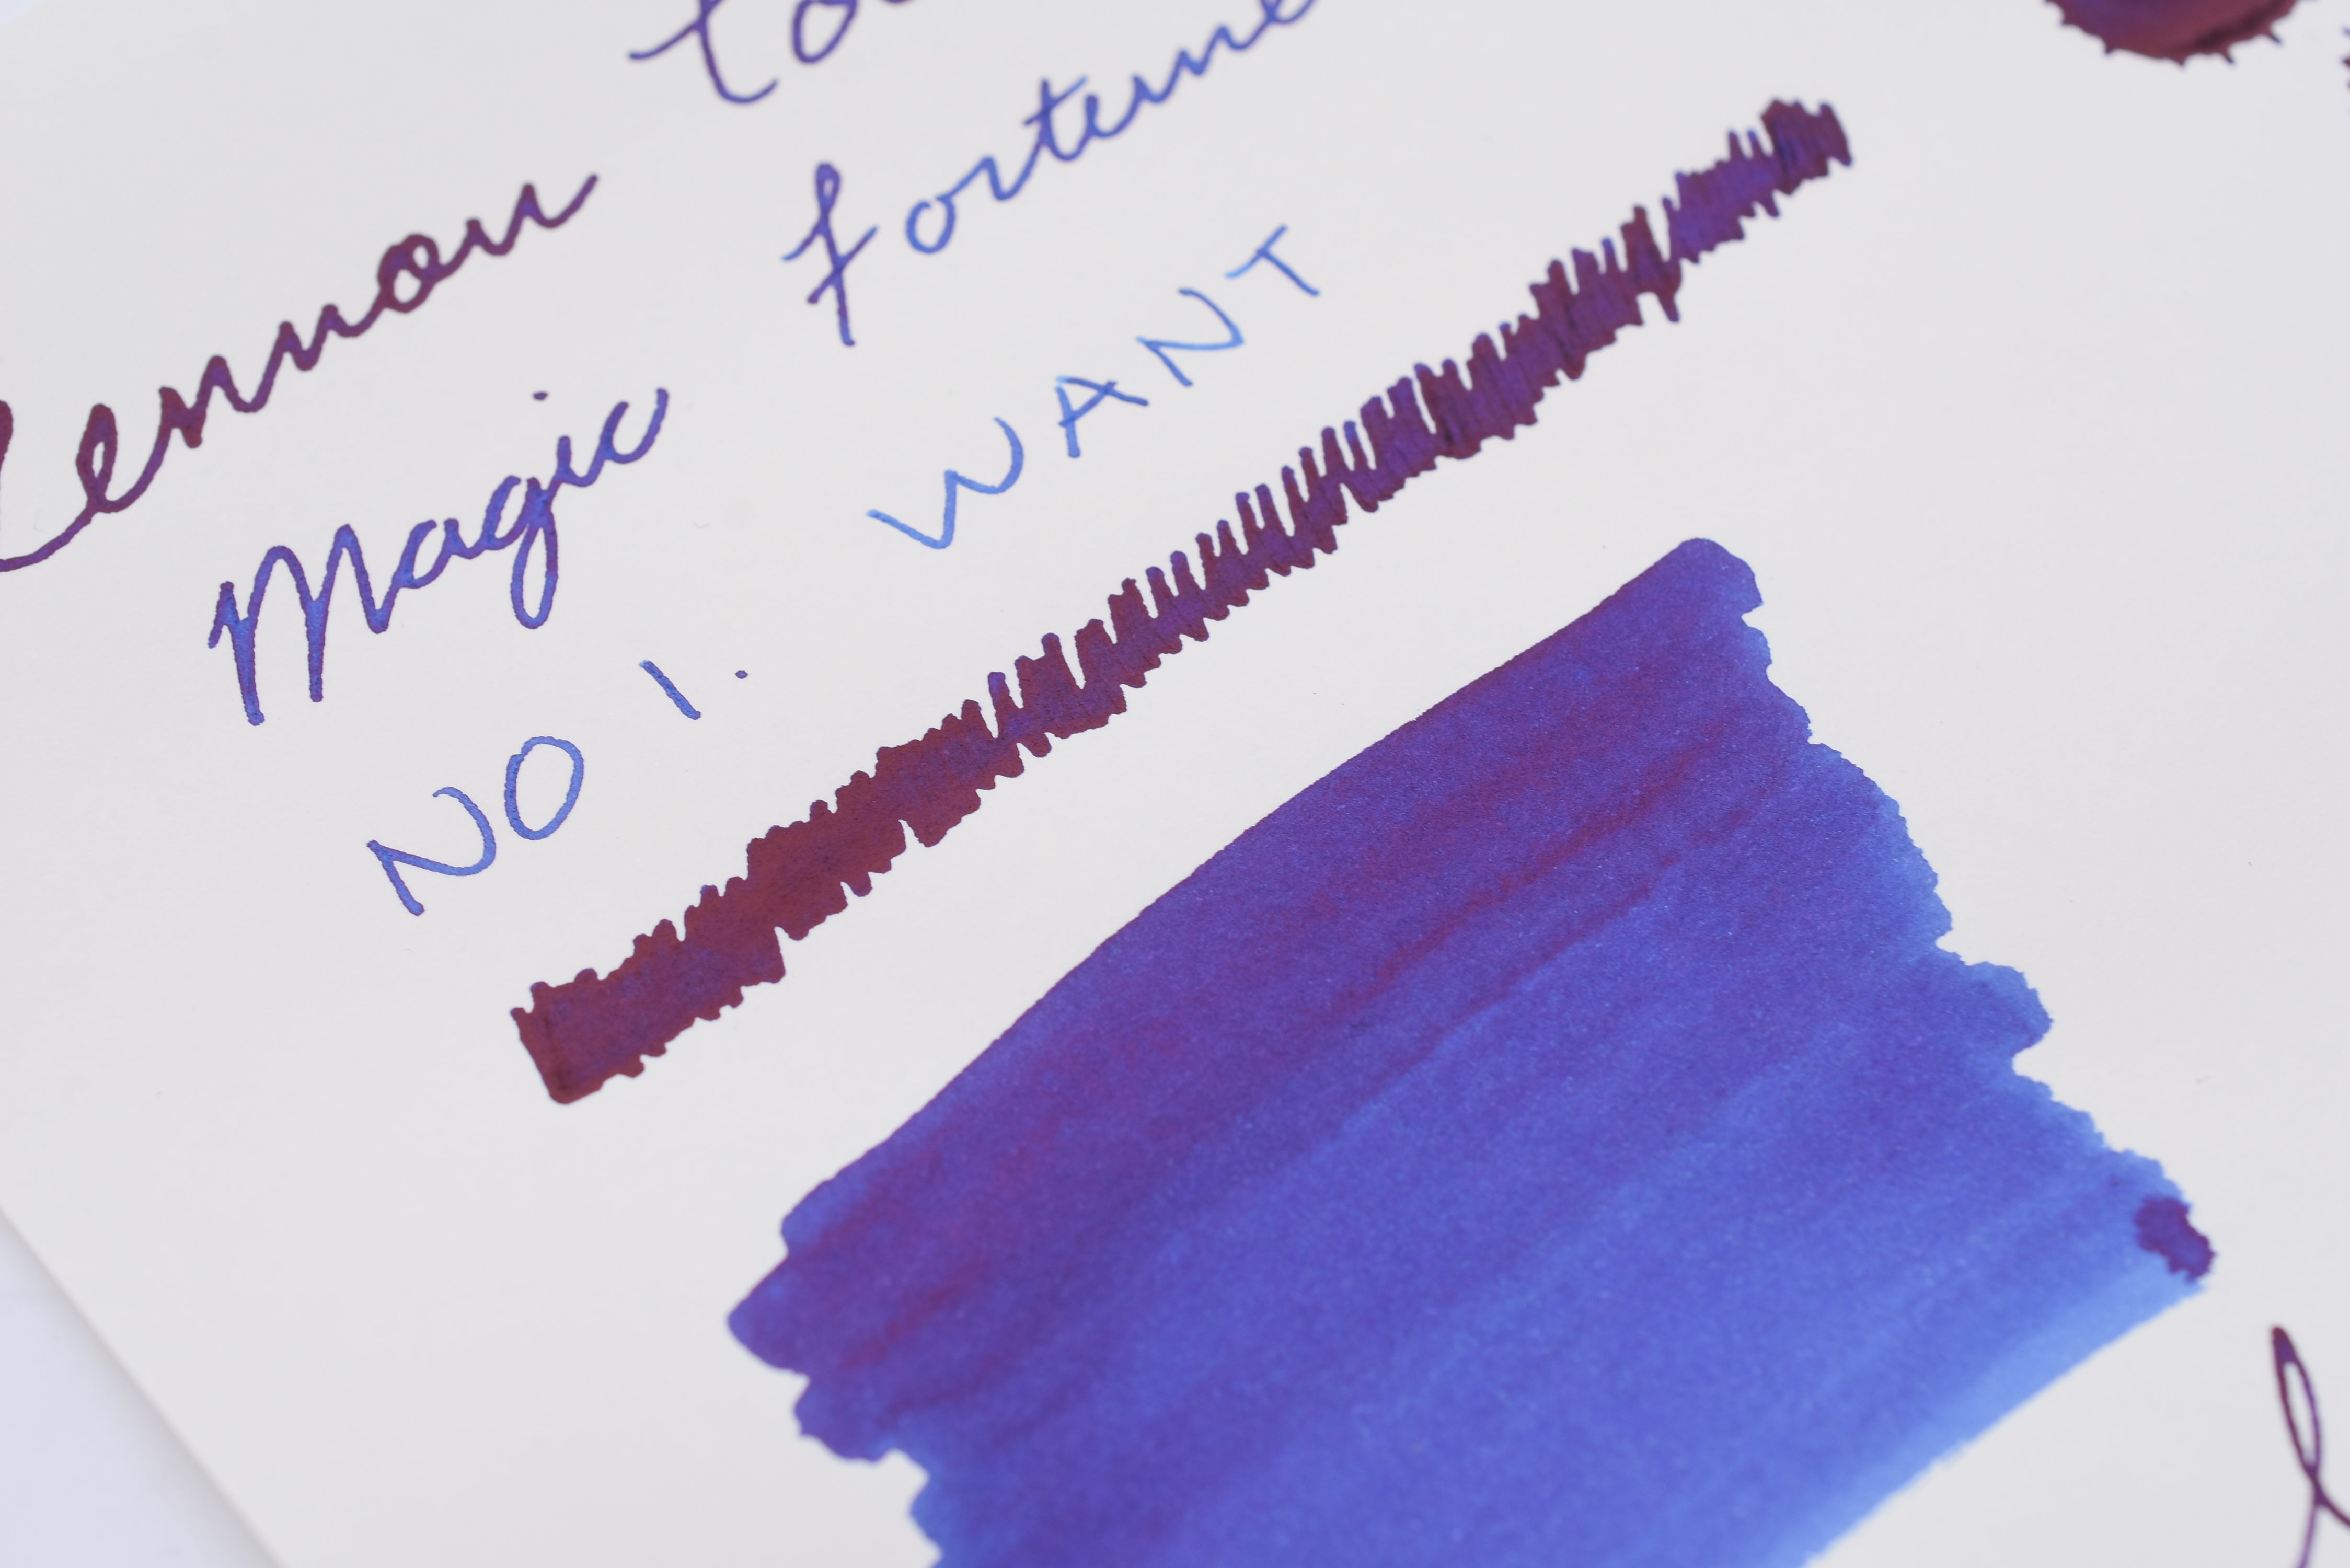 Lennon To
Magic fortune
NO 1. WANT